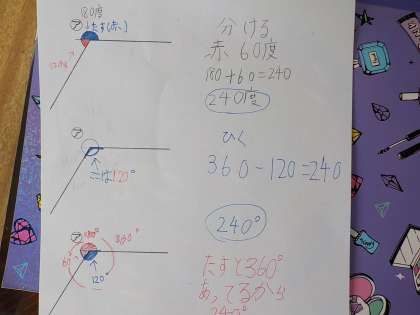 180度
㋐ たす(赤)
分ける
赤 60度
180+60=240
240度
㋐
ここは120°
ひく
360-120=240
240°
㋐ 180° 360°
60°
120°
たすと360°
あってるから
240°